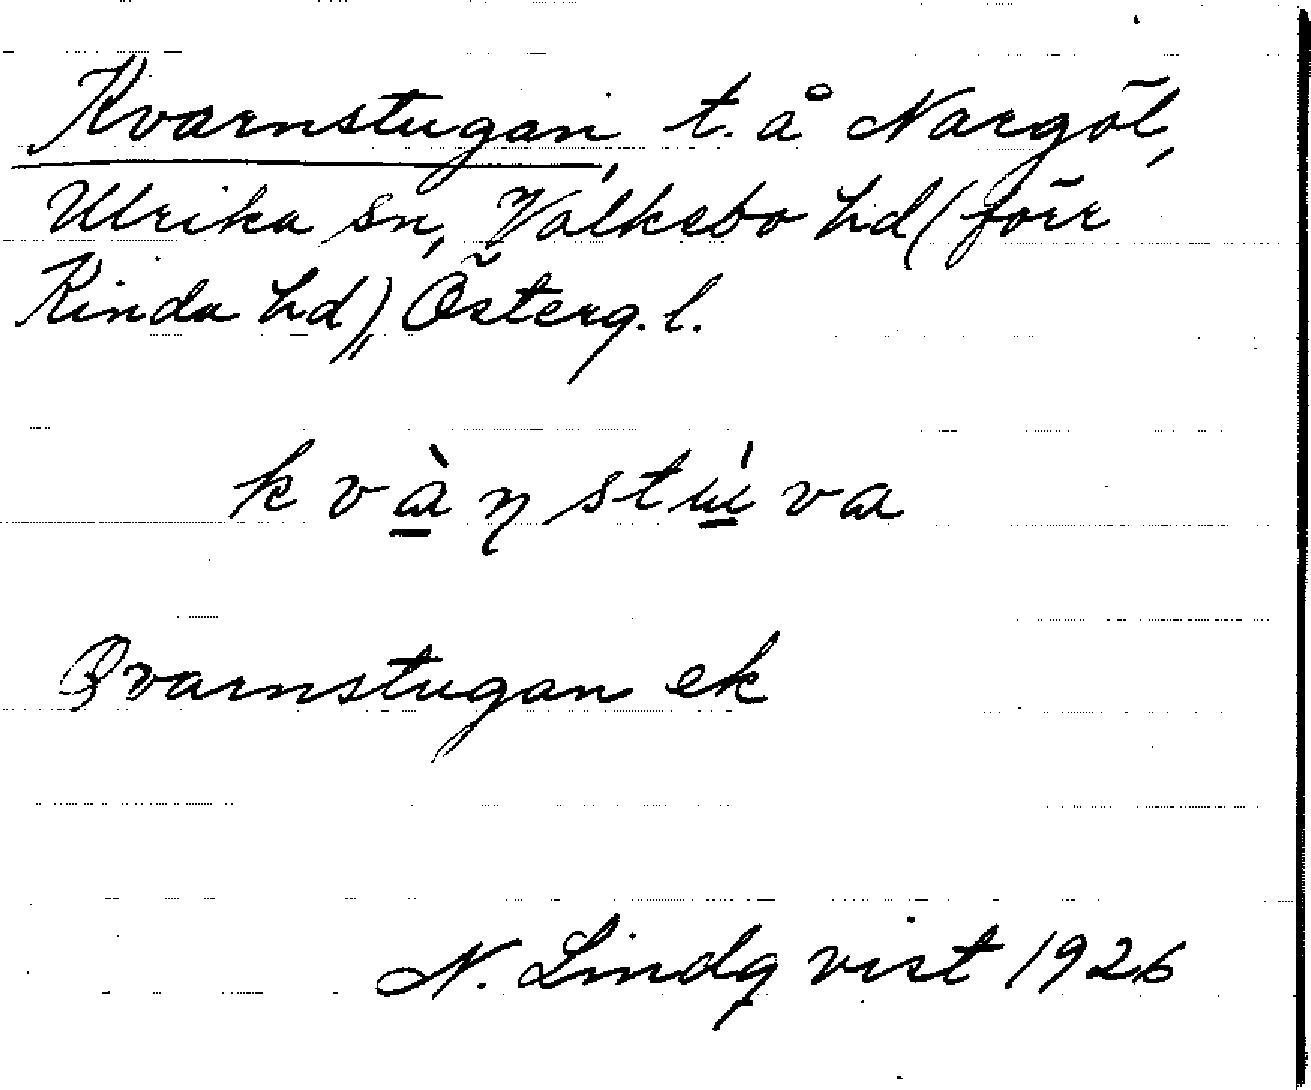 Kvarnstugan, t. å Nargöl,
Ulrika sn, Valkebo hd (förr
Kinda hd), Österg. l.
kvàṇstúva
Qvarnstugan ek
N. Lindqvist 1926